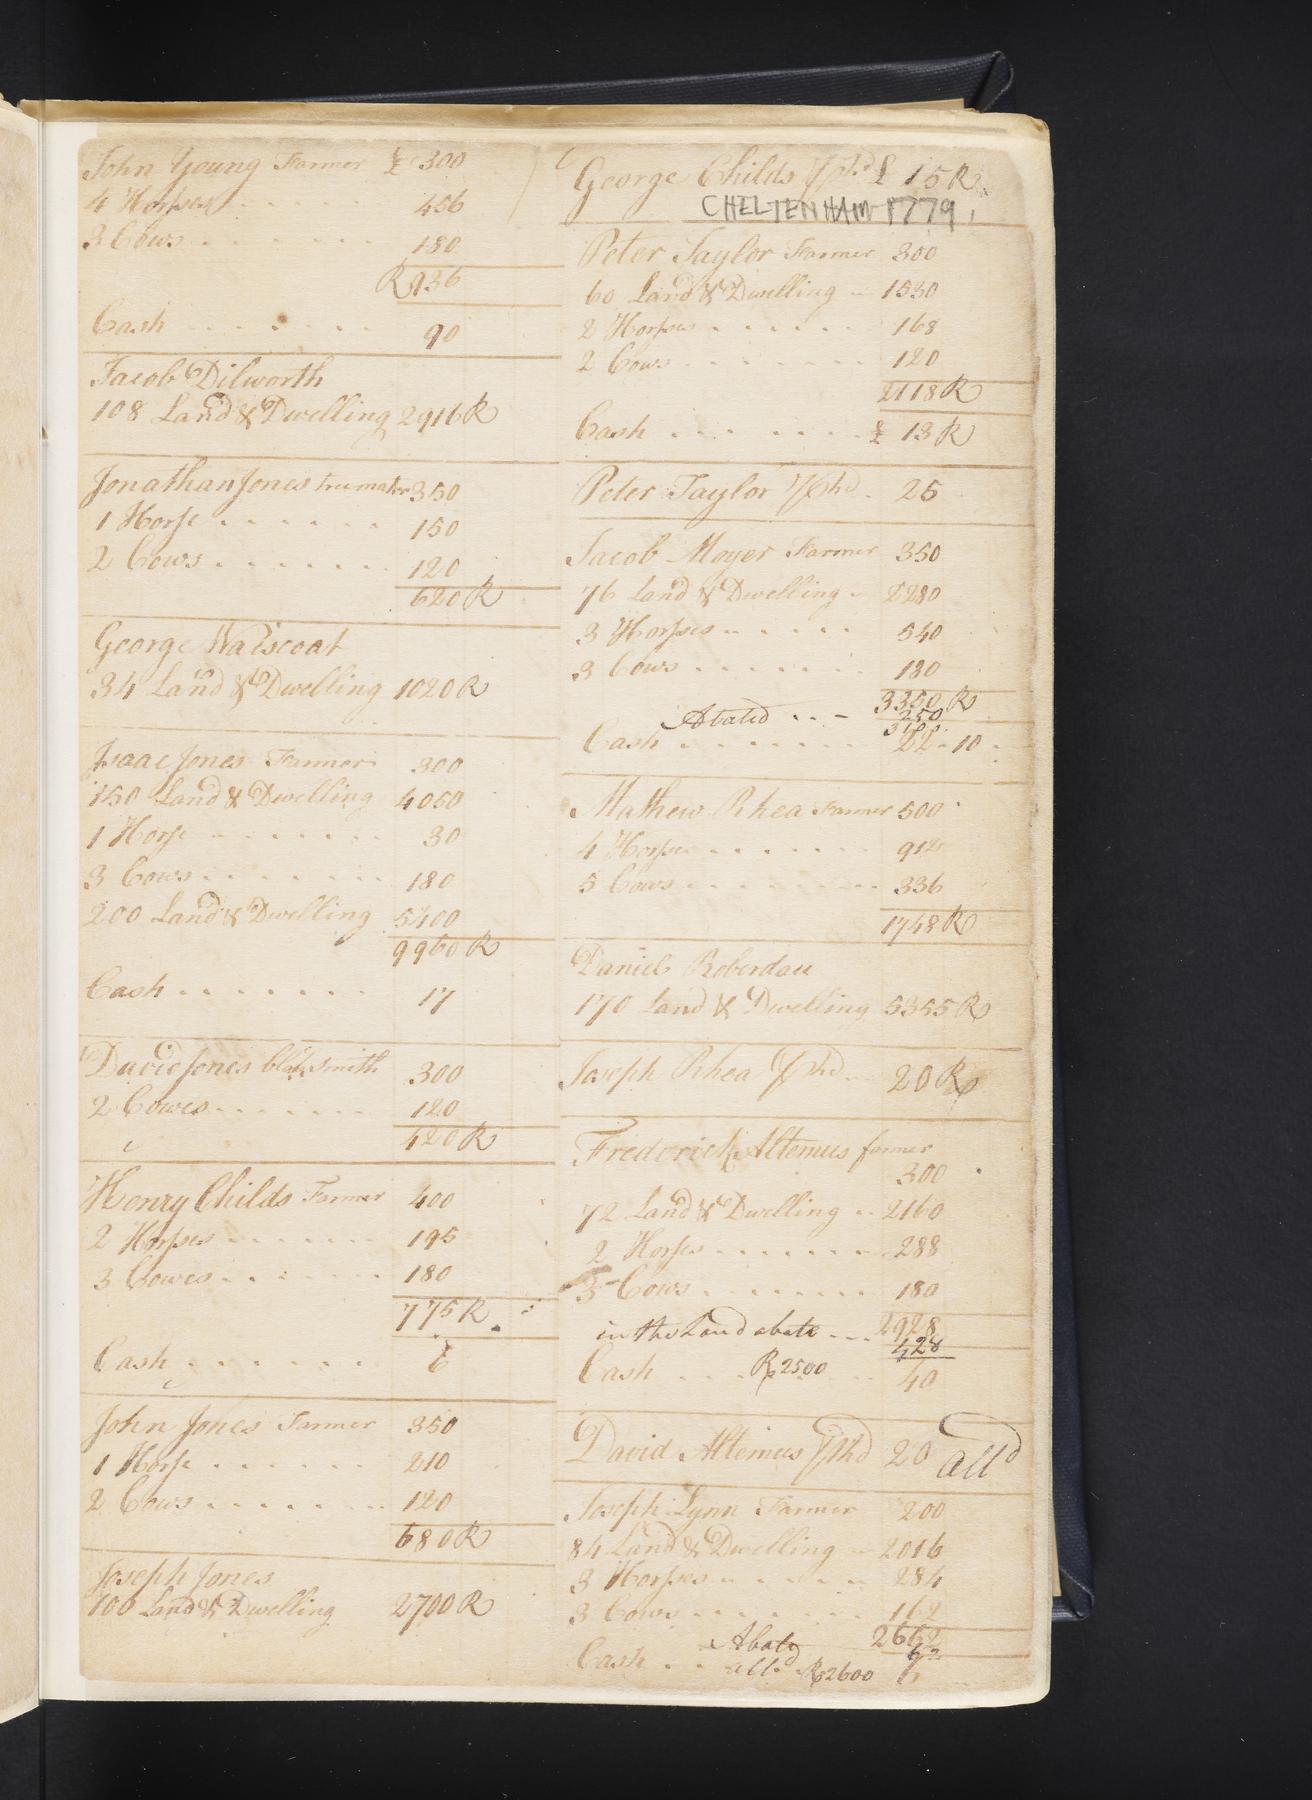 John Young Farmer £ 300
4 Horses 456
3 Cows 180
R 936
Cash 90
Jacob Dilworth
108 Land & Dwelling 2916 R
Jonathan Jones 350
1 Horse 150
2 Cows 120
620 R
George Walscoat
34 Land & Dwelling 1020 R
Isaac Jones Farmer 300
150 Land & Dwelling 4050
1 Horse 30
3 Cows 180
200 Land & Dwelling 5400
9960 R
Cash 17
David Jones blaksmith 300
2 Cowes 120
420 R
Henry Childs Farmer 400
2 Horses 195
3 Cowes 180
775 R
Cash
John Jones Farmer 350
1 Horse 210
2 Cows 120
680 R
Joseph Jones
100 Land & Dwelling 2700 R
George Childs £ 15 R
CHELTENHAM 1779
Peter Taylor Farmer 300
60 Land & Dwelling 1530
2 Horses 168
2 Cows 120
2118 R
Cash £ 13 R
Peter Taylor 25
Jacob Moyer Farmer 350
76 Land & Dwelling 2280
3 Horses 540
3 Cows 180
3350 R
Abated 250
Cash 22-10
Mathew Rhea Farmer 500
4 Horses 912
5 Cows 336
1748 R
Daniel Roberdau
170 Land & Dwelling 5355 R
Joseph Rhea 20 R
Frederick Altemus farmer
300
72 Land & Dwelling 2160
2 Horses 288
3 Cows 180
2928
in the Land abate 428
Cash R 2500 40
David Altemus 20 alld
Joseph Lynn Farmer 200
84 Land & Dwelling 2016
3 Horses 284
3 Cows 162
2662
Abatd
Cash all R 2600